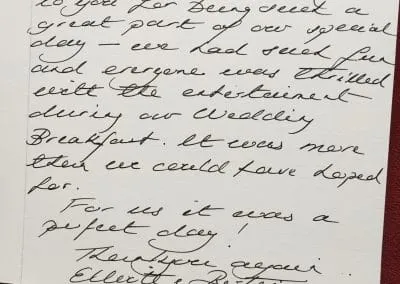 to you for being such a
great part of our special
day – we had such fun
and everyone was thrilled
with the entertainment
during our Wedding
Breakfast. It was more
then we could have hoped
for.
For us it was a
perfect day!
Thankyou again
Elliott &